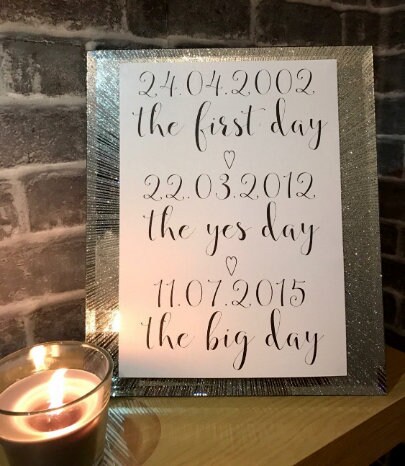 24.04.2002
the first day
22.03.2012
the yes day
11.07.2015
the big day